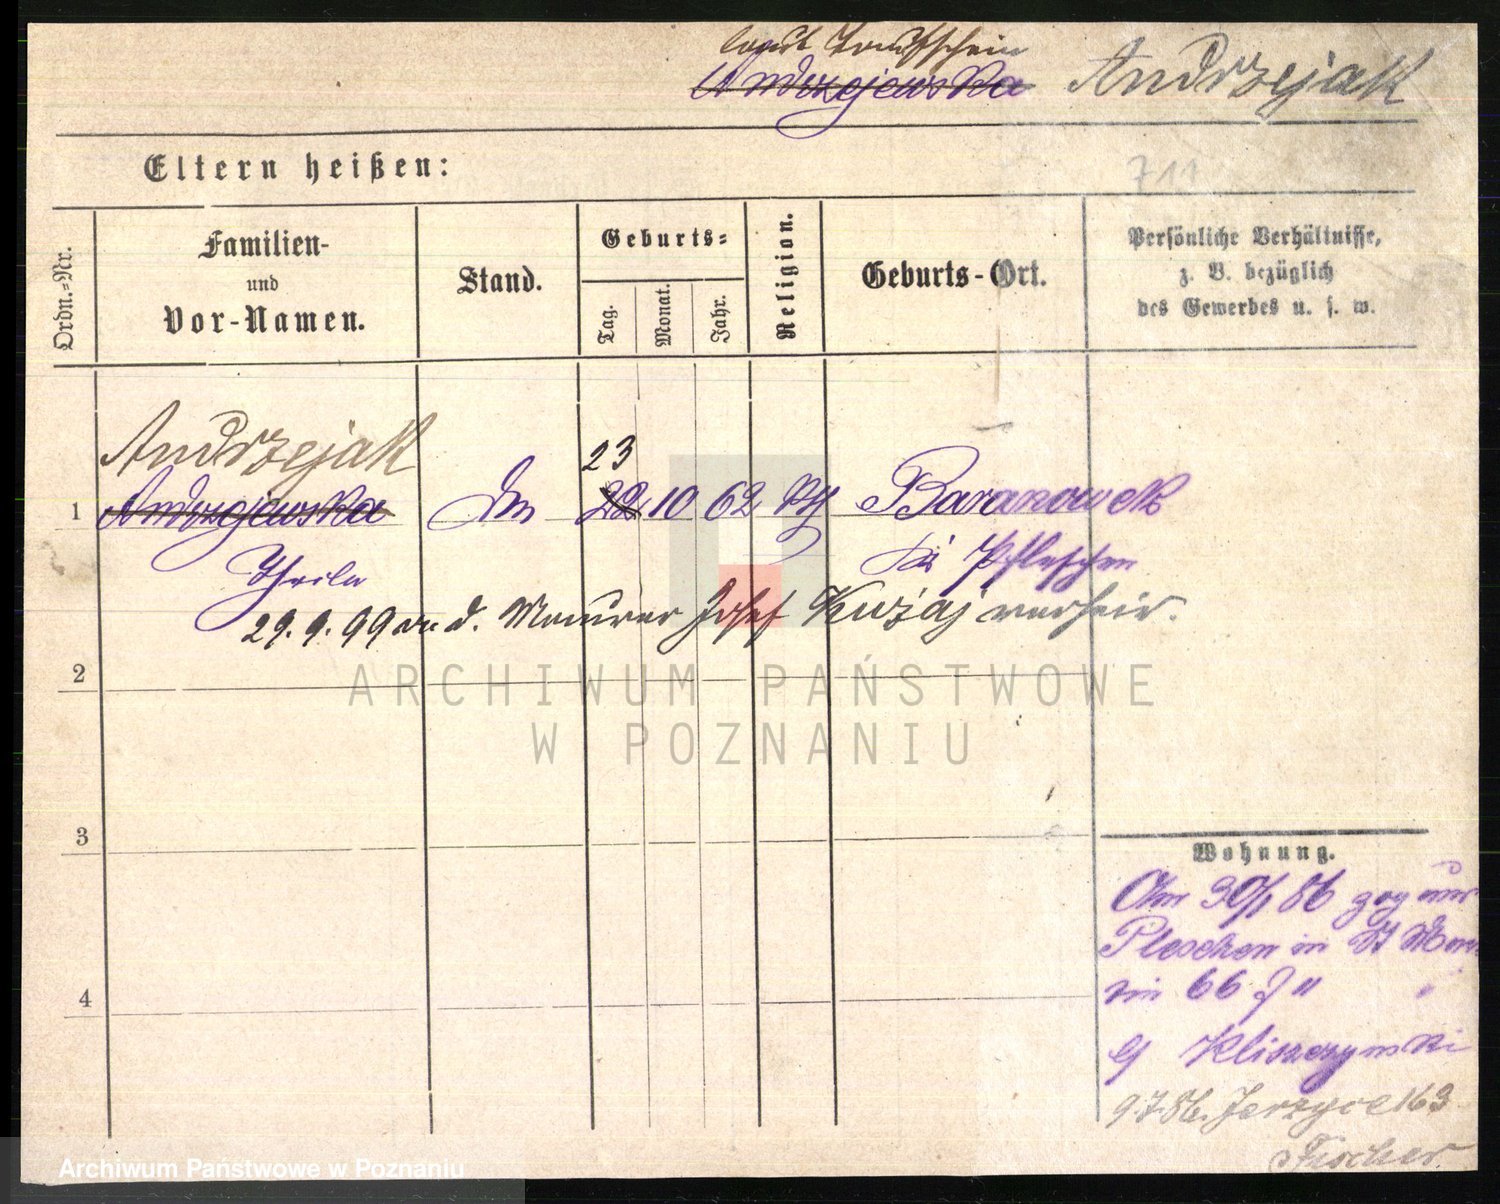 laut Taufschein
Andrzejewska Andrzejak
Eltern heißen:
711
Ordn.-Nr.
Familien-
und
Vor-Namen.
Stand.
Geburts-
Tag.
Monat.
Jahr.
Religion.
Geburts-Ort.
Persönliche Verhältnisse,
z. B. bezüglich
des Gewerbes u. s. w.
Andrzejak
23
1 Andrzejewska 22 10 62 Baranowek
bei Pleschen
29.9.99 an d. Maurer Josef Kuziaj verheir.
2
ARCHIWUM PAŃSTWOWE
W POZNANIU
3
Wohnung.
Am 30/1 86 zog
Pleschen in St
tin 66
Kliszczynski
4
9.7.86. Jerzyce 163
Fischer
Archiwum Państwowe w Poznaniu